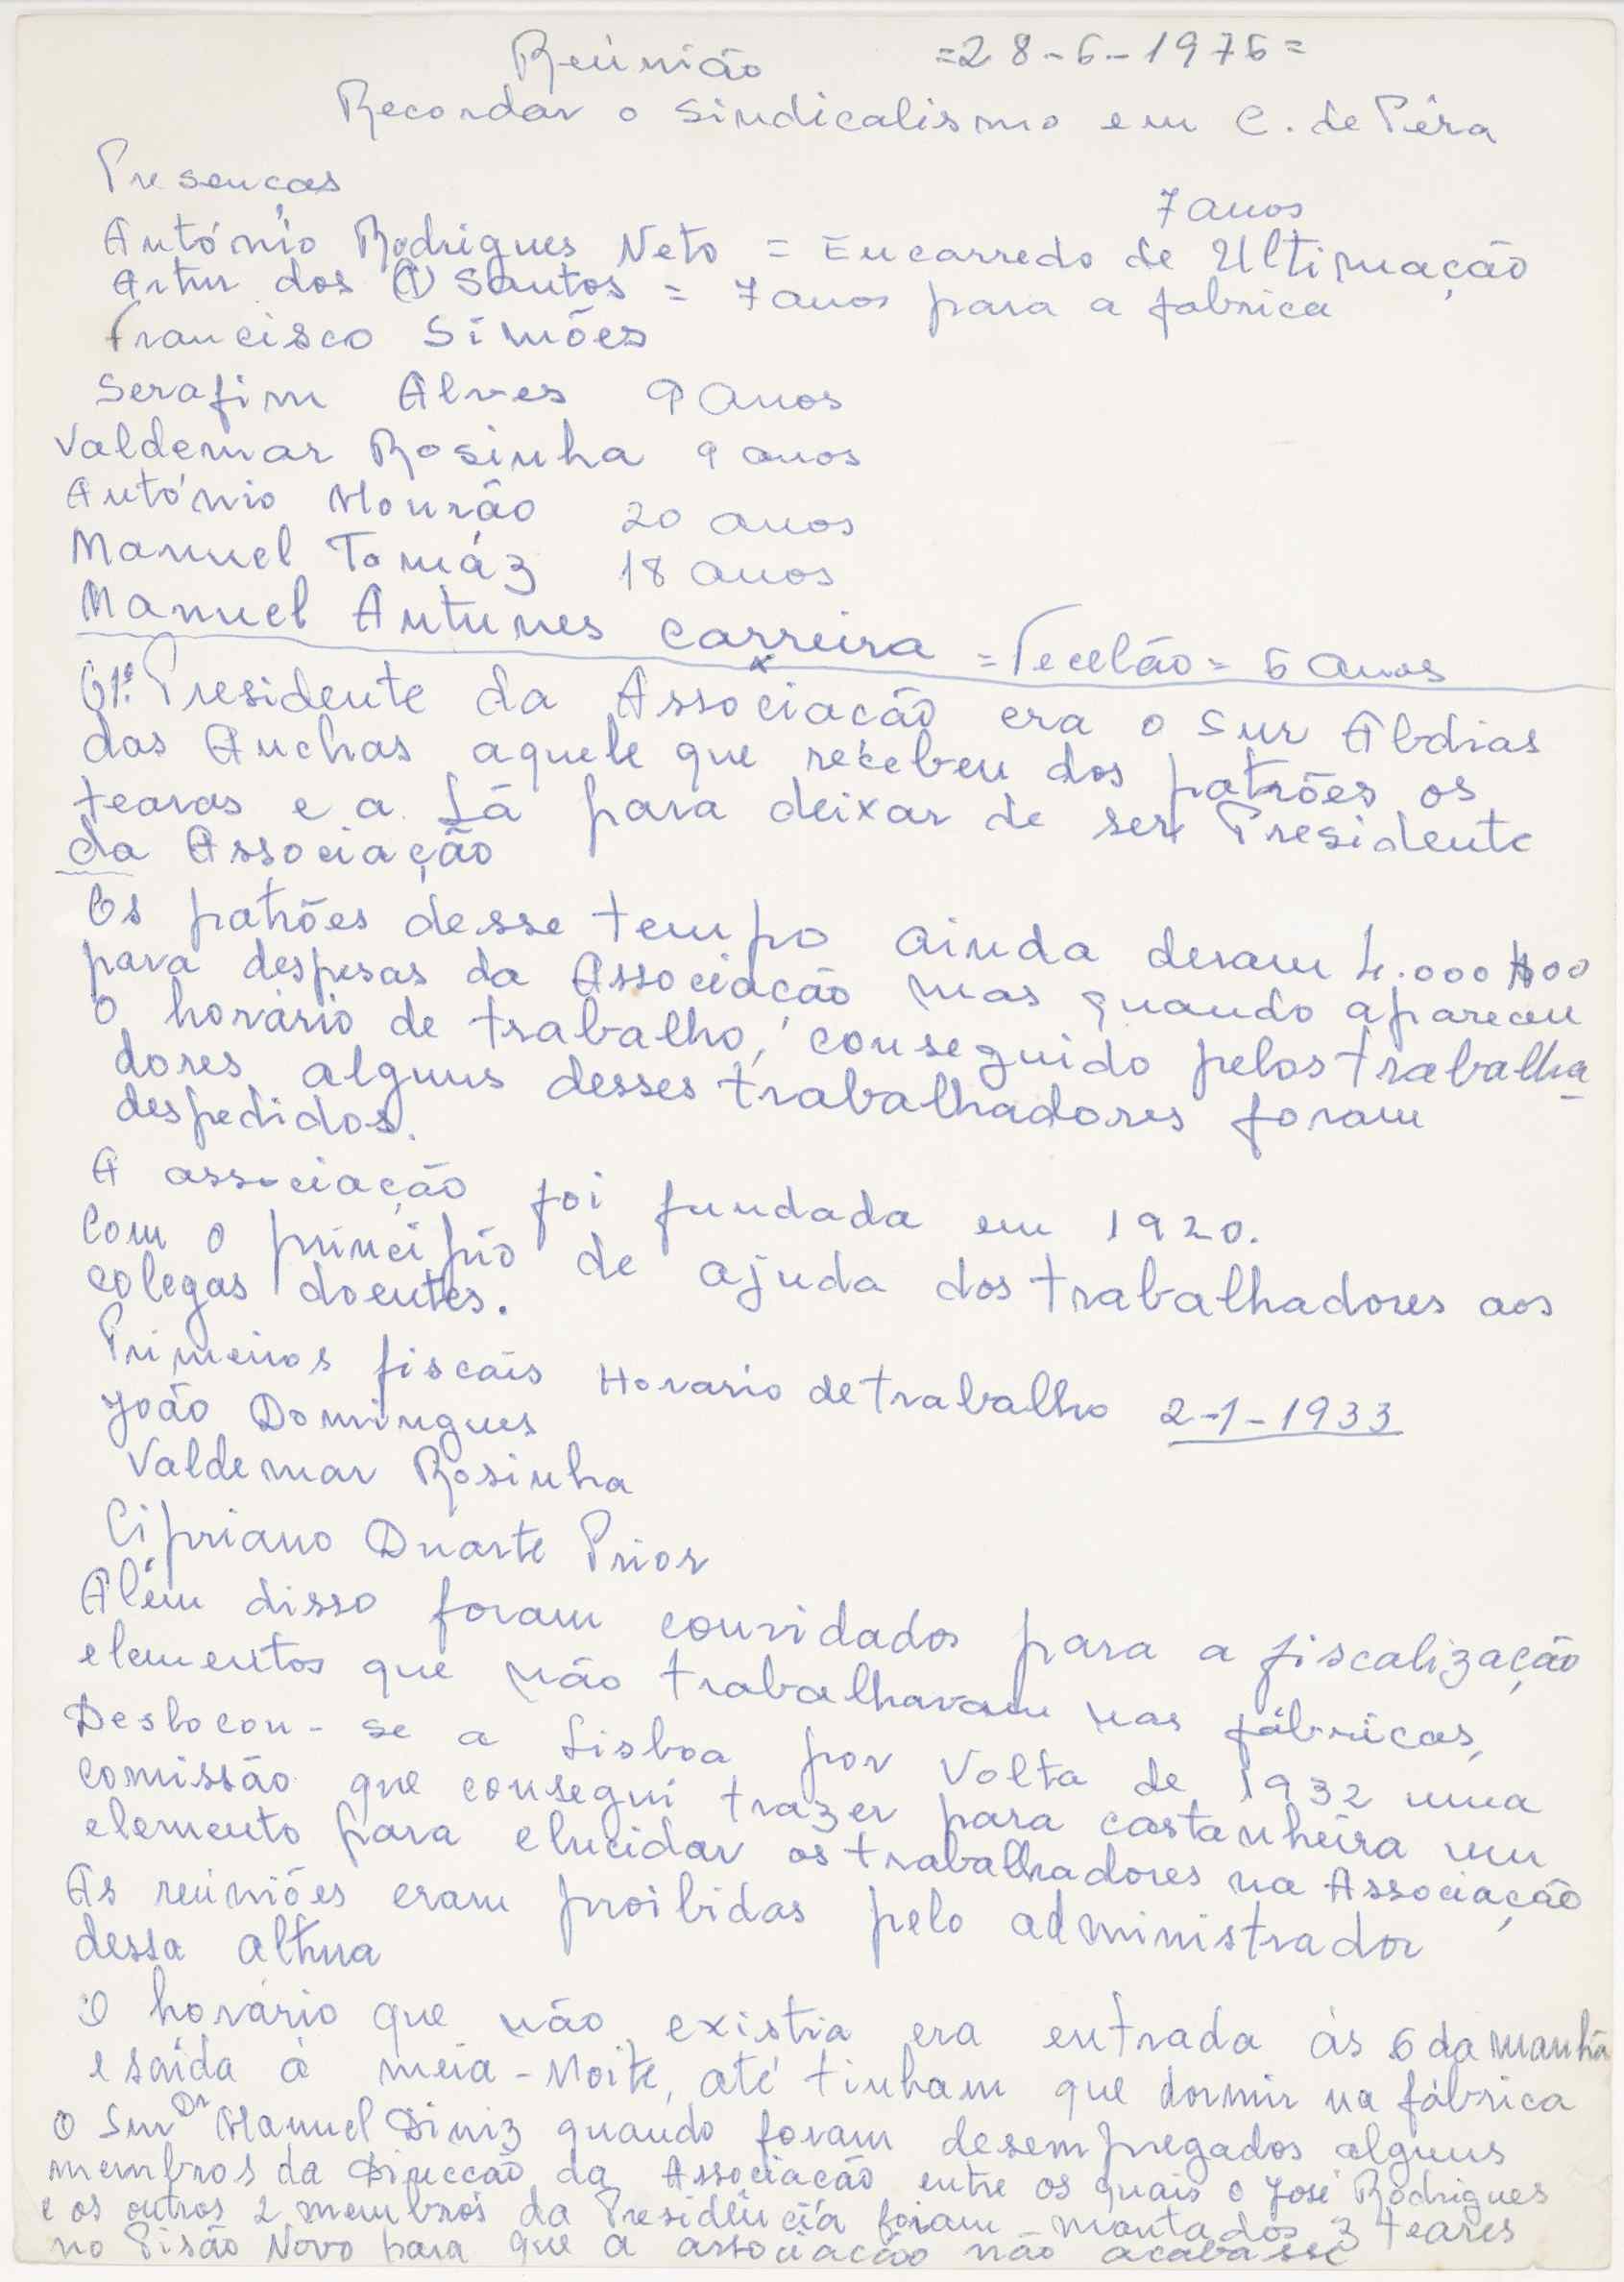 Reúnião =28-6-1976=
Recordar o sindicalismo em C. de Pêra
Presenças
7 anos
António Rodrigues Neto = Encarredo de Ultimação
Artur dos (A) Santos = 7 anos para a fabrica
Francisco Simões
Serafim Alves 9 anos
Valdemar Rosinha 9 anos
António Mourão 20 anos
Manuel Tomáz 18 anos
Manuel Antunes Carreira = Tecelão = 6 anos
O 1º Presidente da Associação era o Snr Abdias
das Auchas aquele que recebeu dos patrões os
teares e a Lã para deixar de ser Presidente
da Associação
Os patrões desse tempo ainda deram 4.000$00
para despesas da Associação mas quando apareceu
o horário de trabalho, conseguido pelos trabalha
dores alguns desses trabalhadores foram
despedidos.
A associação foi fundada em 1920.
Com o príncipio de ajuda dos trabalhadores aos
colegas doentes.
Primeiros fiscais Horario de trabalho 2-1-1933
João Domingues
Valdemar Rosinha
Cipriano Duarte Prior
Além disso foram convidados para a fiscalização
elementos que não trabalhavam nas fábricas,
Deslocou-se a Lisboa por Volta de 1932 uma
comissão que consegui trazer para castanheira um
elemento para elucidar os trabalhadores na Associação
As reúniões eram proibidas pelo administrador
dessa altura
O horário que não existia era entrada ás 6 da manhã
e saída à meia-Noite, até tinham que dormir na fábrica
O Snr Dr Manuel Diniz quando foram desempregados alguns
membros da Direcção da Associação entre os quais o José Rodrigues
e os outros 2 membros da Presidência foram montados 3 teares
no Pisão Novo para que a associação não acabasse